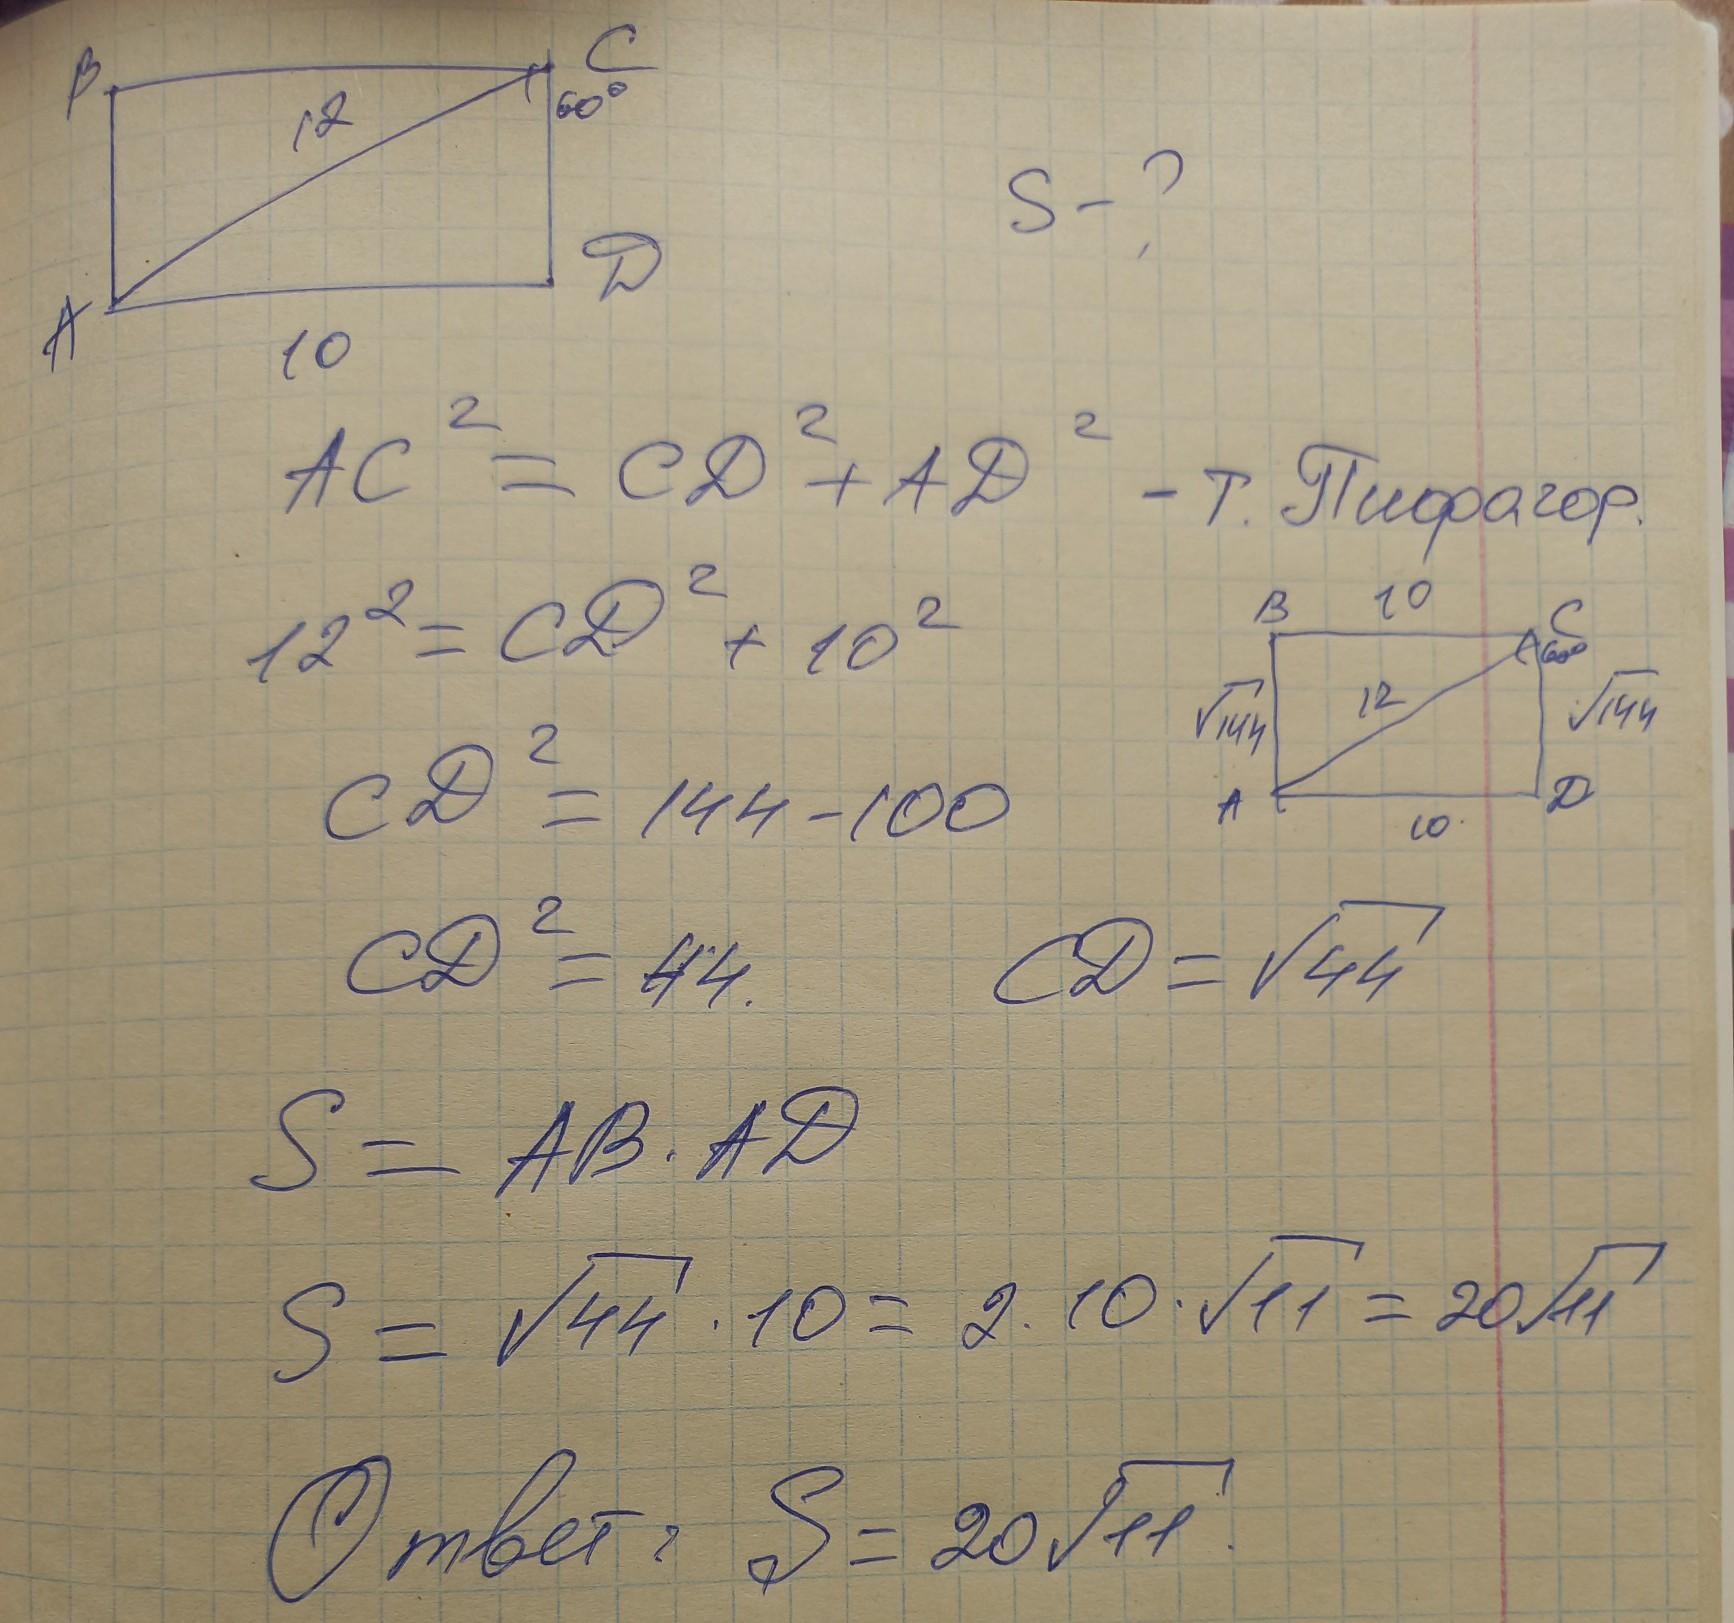 B
C
12
60°
S - ?
A
D
10
AC² = CD² + AD² - т. Пифагор.
12² = CD² + 10²
B 10 C
60°
√144 12 √144
A 10 D
CD² = 144 - 100
CD² = 44. CD = √44
S = AB · AD
S = √44 · 10 = 2 · 10 · √11 = 20√11
Ответ: S = 20√11.